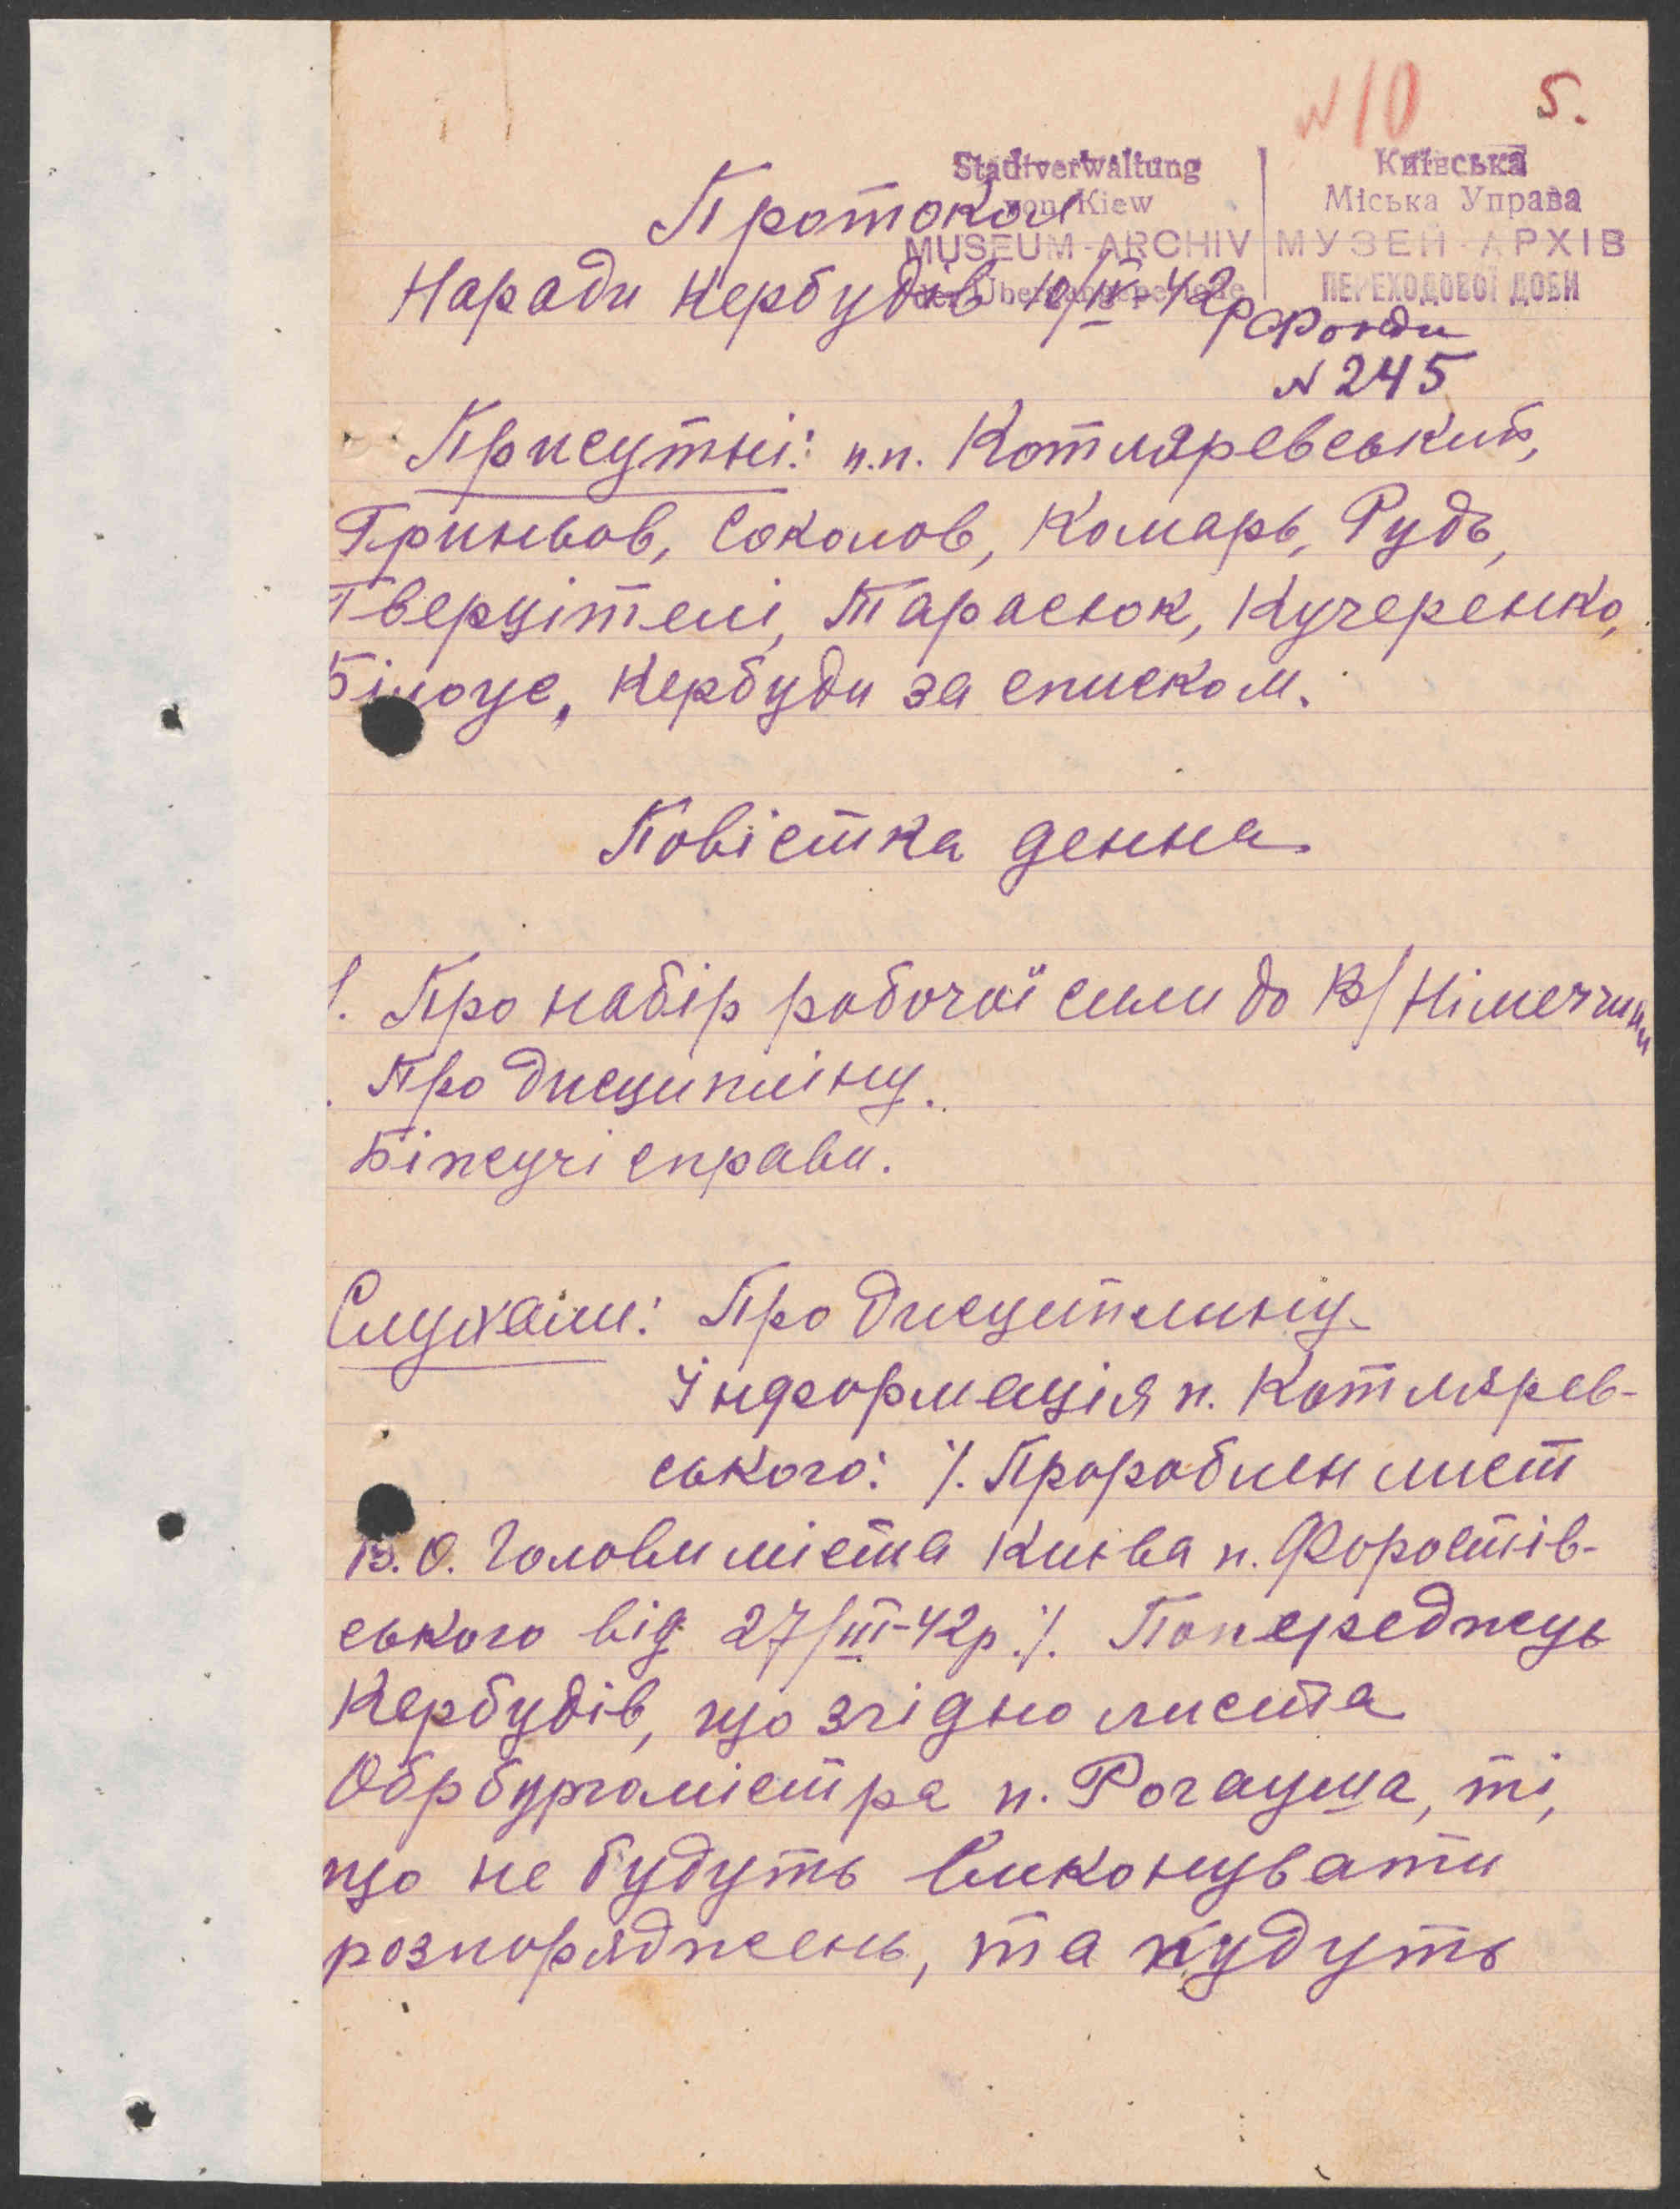 № 10 5.
Stadtverwaltung
von Kiew
MUSEUM-ARCHIV
der Übergangsperiode
Київська
Міська Управа
МУЗЕЙ-АРХІВ
ПЕРЕХОДОВОЇ ДОБИ
Протокол
Наради Кербудів 10/IV-42р
Фонди
№ 245
Присутні: п.п. Котляревський,
Гриньов, Соколов, Комарь, Рудь,
Тверцітелі, Тарасюк, Кучеренко,
Білоус, Кербуди за списком.
Повістка денна
1. Про набір робочої сили до В/Німеччини
. Про дисципліну.
Біжучі справи.
Слухали: Про дисциплину
Інформація п. Котлярев-
ського: ⁒ Пророблен лист
В.О. Голови міста Києва п. Форостів-
ського від 27/III-42р ⁒ Попереджець
Кербудів, що згідно листа
Обрбургамістра п. Рогауша, ті,
що не будуть виконувати
розпоряджень, та кудуть